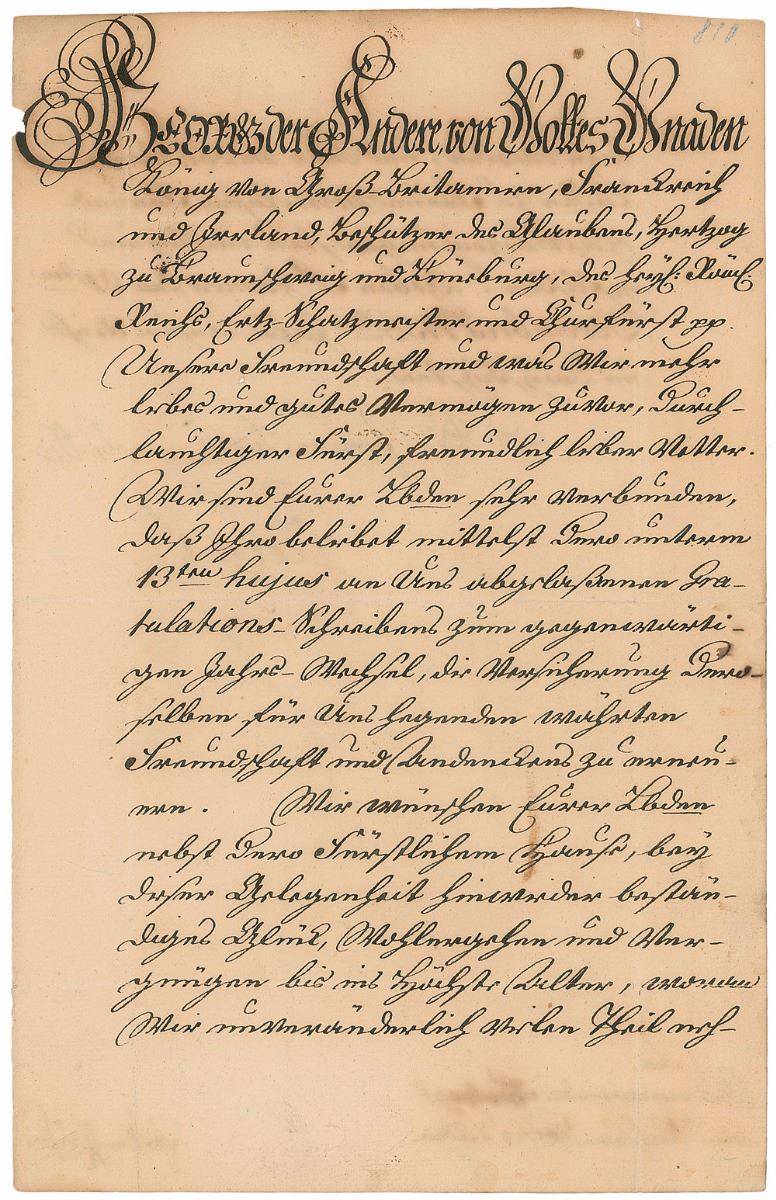 810
GEORG der Andere, von Gottes Gnaden
König von Groß-Britannien, Franckreich
und Irrland, Beschützer des Glaubens, Hertzog
zu Braunschweig und Lüneburg, des Heyl: Röm:
Reichs, Ertz-Schatzmeister und Churfürst pp.
Unsere Freundschaft und was Wir mehr
liebes und gutes Vermögen zuvor, Durch-
lauchtiger Fürst, freundlich lieber Vetter.
Wir sind Eurer Lbden sehr verbunden,
daß Ihro beliebet mittelst Dero unterm
13ten hujus an Uns abgelaßenen Gra-
tulations-Schreibens zum gegenwärti-
gen Jahrs-Wechsel, die Versicherung Dero-
selben für Uns hegenden währten
Freundschaft und Andenckens zu erneu-
ern. Wir wünschen Eurer Lbden
nebst Dero Fürstlichem Hause, bey
dieser Gelegenheit hinwieder bestän-
diges Glück, Wohlergehen und Ver-
gnügen bis ins Höchste Alter, woran
Wir unveränderlich vielen Theil neh-